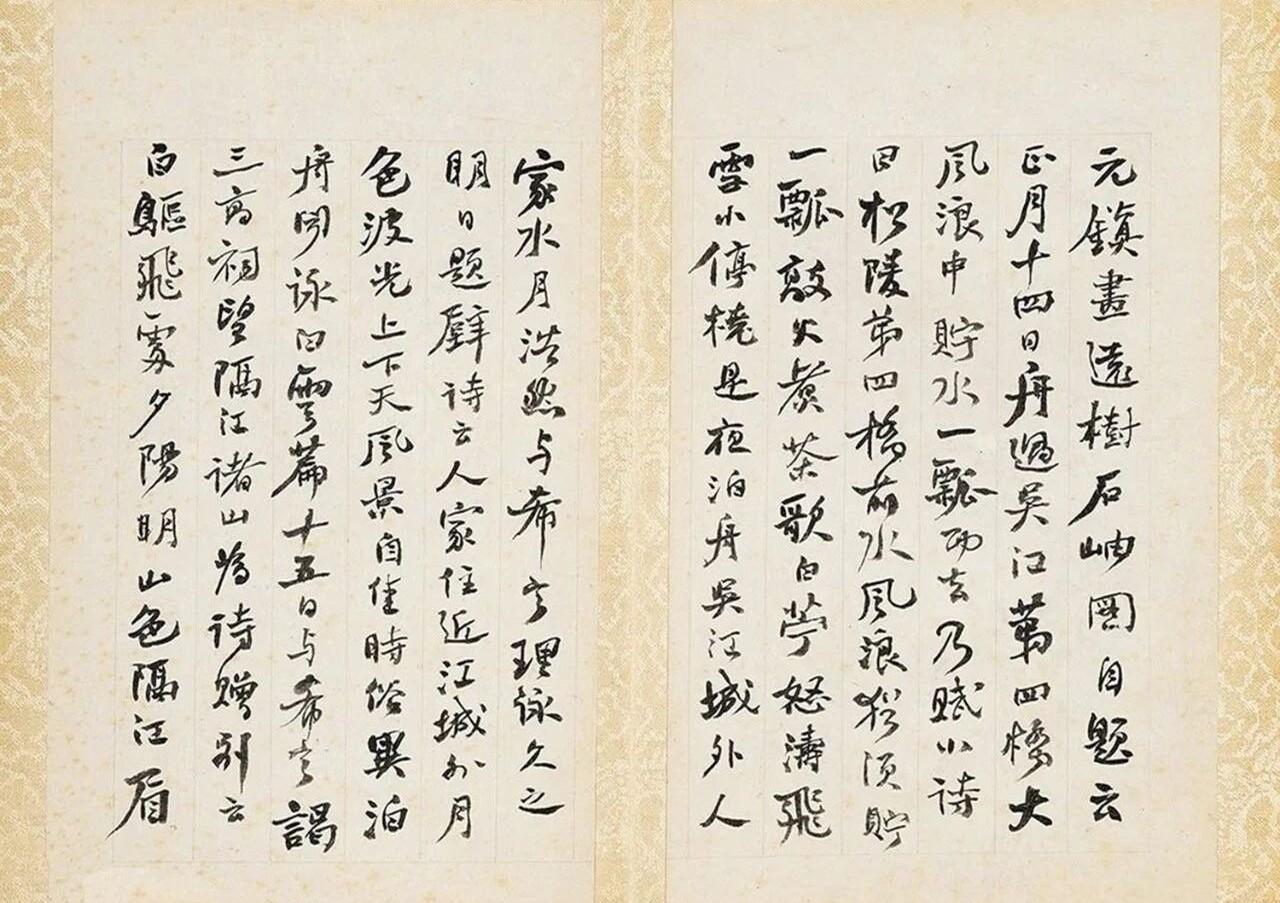 元鎮畫遠樹石岫圖自題云
正月十四日舟過吳江第四橋大
風浪中貯水一瓢而去乃賦小詩
曰松陵第四橋前水風浪猶須貯
一瓢敲火煑茶歌白苧怒濤飛
雪小停橈是夜泊舟吳江城外人
家水月浩然与希言理詠久之
明日題壁詩云人家住近江城外月
色波光上下天風景自佳時俗異泊
舟閒詠白雲篇十五日与希言謁
三高祠望隔江諸山為詩贈別云
白鷗飛處夕陽明山色隔江眉